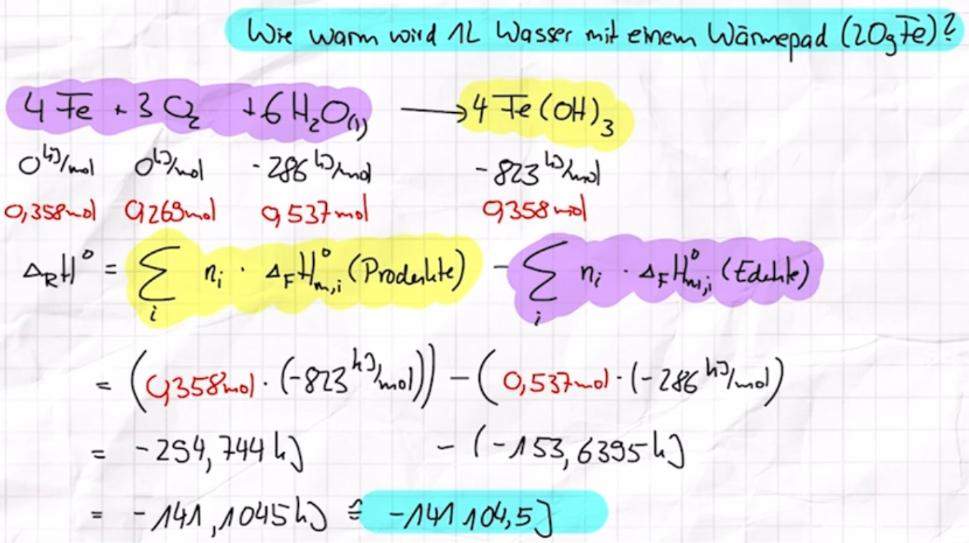 Wie warm wird 1L Wasser mit einem Wärmepad (20g Fe)?
4 Fe + 3 O₂ + 6 H₂O(l) → 4 Fe(OH)₃
0 kJ/mol 0 kJ/mol -286 kJ/mol -823 kJ/mol
0,358mol 0,269mol 0,537mol 0,358mol
ΔRH⁰ = ∑i ni · ΔFH⁰m,i (Produkte) - ∑i ni · ΔFH⁰m,i (Edukte)
= (0,358mol · (-823 kJ/mol)) - (0,537mol · (-286 kJ/mol)
= -294,744kJ - (-153,6395kJ
= -141,1045kJ ≙ -141 104,5J